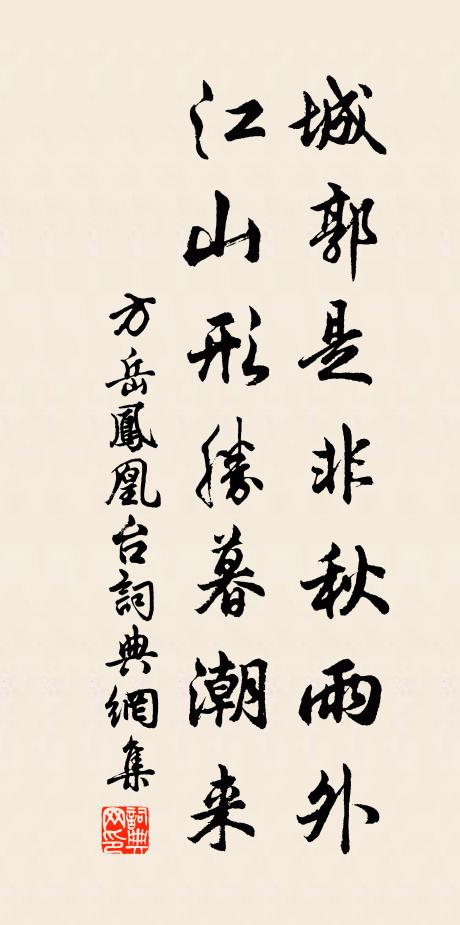 城郭是非秋雨外
江山形勝暮潮来
方岳鳳凰台詞典網集
詞典网印